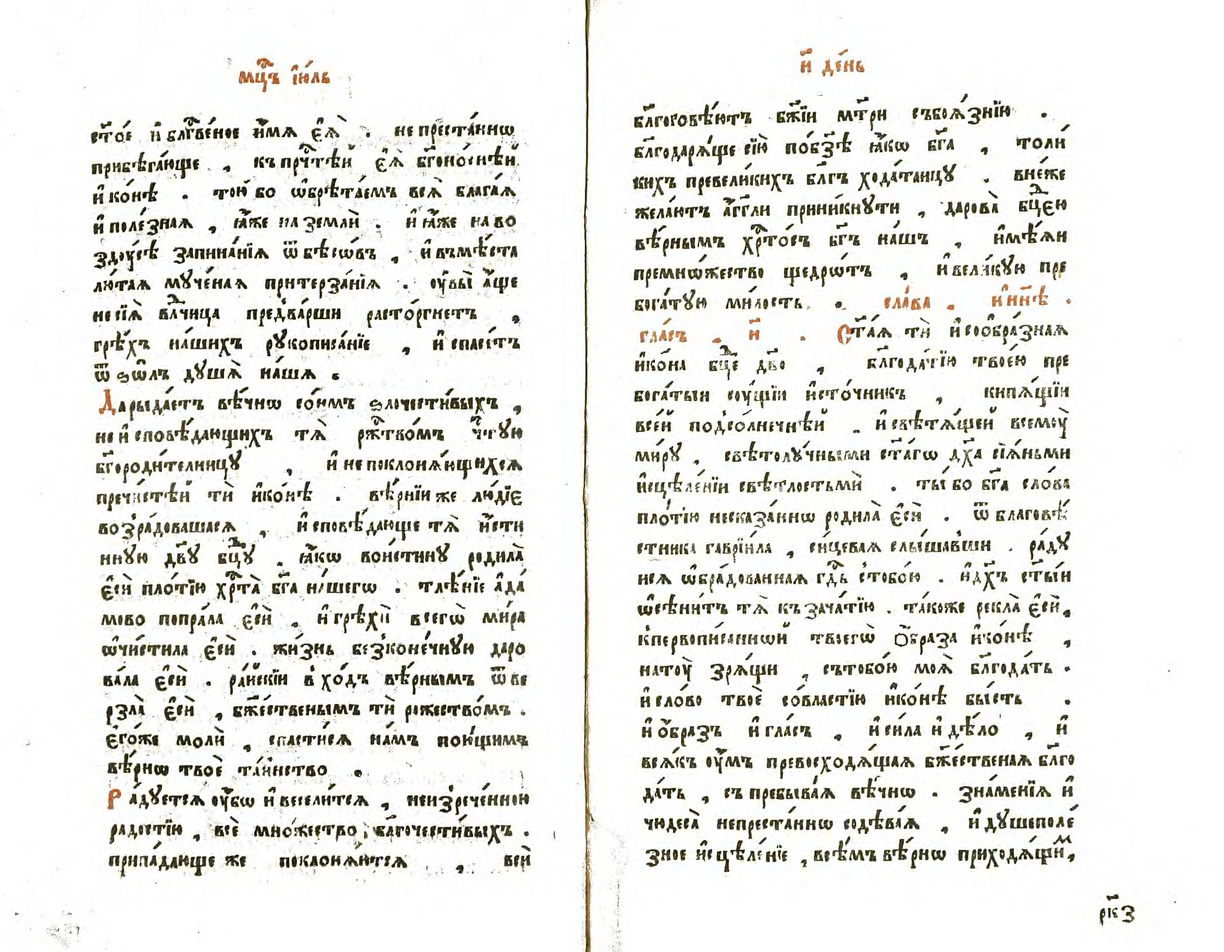 мцⷭ҇ъ і҆ю́ль
ст҃о́е и҆ блгⷭ҇ве́ное и҆́мѧ є҆ѧ̀ . непреста́ннѡ
прибѣга́юще , къ прⷱ҇тѣ́й є҆ѧ̀ бг҃оно́снѣй
и҆ко́нѣ . то́ю бо ѡ҆брѣта́емъ всѧ̀ блага́ѧ
и҆ поле́знаѧ , ꙗ҆́же на землѝ . и҆ ꙗ҆́же на во
здꙋ́сѣ запина́нїѧ ѿ бѣсѡ́въ , и҆ въмѣ́ста
лю́таѧ мꙋче́наѧ притерза́нїѧ . ᲂу҆вы̀ а҆́ще
не сїѧ̀ влⷣчица предвари́вши расто́ргнетъ ,
грѣ́хъ на́шихъ рꙋкописа́нїе , и҆ спасе́тъ
ѿ ѕѡ́лъ дꙋ́шѧ на́шѧ .
Да рыда́етъ вѣ́чнѡ со́нмъ ѕлочести́выхъ ,
не и҆сповѣ́дающихъ тѧ̀ ржⷭ҇тво́мъ чⷭ҇тꙋю
бг҃ороди́тельницꙋ , и҆ не поклонѧ́ющихсѧ
пречи́стѣй тѝ и҆ко́нѣ . вѣ́рнїи же лю́дїе
возра́довашасѧ , и҆сповѣ́дающе тѧ̀ и҆́сти
ннꙋю дв҃ꙋ бцⷣꙋ . ꙗ҆́кѡ вои́стинꙋ родила̀
є҆сѝ пло́тїю хрⷭ҇та̀ бг҃а на́шегѡ . тлѣ́нїе а҆да́
мово попра́ла є҆сѝ , и҆ грѣхѝ всегѡ̀ ми́ра
ѡ҆чи́стила є҆сѝ . жи́знь безконе́чнꙋю даро
ва́ла є҆сѝ . ра́йскїи вхо́дъ вѣ́рнымъ ѿве
рзла̀ є҆сѝ , бж҃е́ственымъ тѝ рожество́мъ .
є҆го́же молѝ , спасти́сѧ на́мъ пою́щимъ
вѣ́рнѡ твоѐ та́инство .
Ра́дꙋетсѧ ᲂу҆́бѡ и҆ весели́тсѧ , неизрече́нною
ра́достїю , всѐ мно́жество благочести́выхъ .
припа́дающе же поклонѧ́ютсѧ , всѝ
и҃ де́нь
благоговѣ́ютъ бж҃їи мт҃ри съ боѧ́знїю .
блгⷣарѧ́ще сїю̀ побѣ́зѣ ꙗ҆́кѡ бг҃а , толи́
кихъ превели́кихъ бл҃гъ хода́таицꙋ . в ню́же
жела́ютъ а҆́гг҃ли прини́кнꙋти , дарова̀ бцⷣею
вѣ́рнымъ хрⷭ҇то́съ бг҃ъ на́шъ , и҆мѣ́ѧи
премно́жество щедро́тъ , и҆ вели́кꙋю пре
бога́тꙋю ми́лость . сла́ва . и҆ ны́нѣ .
гла́съ . и҃ . Ст҃а́ѧ тѝ и҆ соѻбра́знаѧ
и҆ко́на бцⷣе дв҃о , благода́тїю твое́ю пре
бога́тыи сꙋ́щїи и҆сто́чникъ , кипѧ́щїи
все́й подсо́лнечнѣй . и҆ свѣтѧ́щей всемꙋ̀
ми́рꙋ , свѣтолꙋ́чными ст҃а́гѡ дх҃а сїѧ́ньми
и҆сцѣле́нїи свѣ́тлостьмѝ . ты́ бо бг҃а сло́ва
пло́тїю несказа́ннѡ родила̀ є҆сѝ . ѿ благовѣ́
стника гаврїи́ла , си́цеваѧ слы́шавши . ра́дꙋ
исѧ ѡ҆бра́дованнаѧ гдⷭ҇ь с тобо́ю . и҆ дх҃ъ ст҃ы́и
ѡ҆сѣни́тъ тѧ̀ къ зача́тїю . та́коже рекла̀ є҆сѝ ,
к первопи́саннѡй твоегѡ̀ ѻ҆́браза и҆ко́нѣ ,
на тꙋ̀ зрѧ́щи , съ тобо́ю моѧ̀ благода́ть .
и҆ сло́во твоѐ со вла́стїю и҆ко́нѣ бы́сть .
и҆ ѻ҆́бразъ и҆ гла́съ , и҆ си́ла и҆ дѣ́ло , и҆
всѧ́къ ᲂу҆́мъ превосходѧ́щаѧ бж҃е́ственаѧ благо
да́ть , съ пребыва́ѧ вѣ́чнѡ . зна́менїѧ и҆
чюдеса̀ непреста́ннѡ содѣва́ѧ , и҆ дꙋшеполе́
зное и҆сцѣле́нїе , всѣ́мъ вѣ́рнѡ приходѧ́щимъ ,
рк҃з